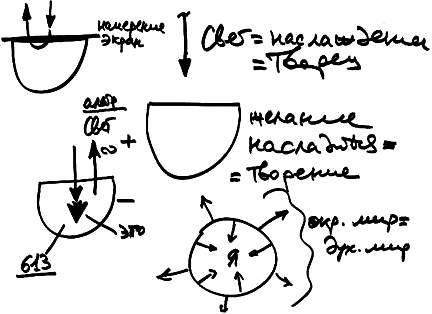 намерение
экран
Свет = наслаждение
= Творец
желание
насладиться =
= Творение
альтр
Свет
∞ +
−
эго
613
Я
окр. мир =
дух. мир